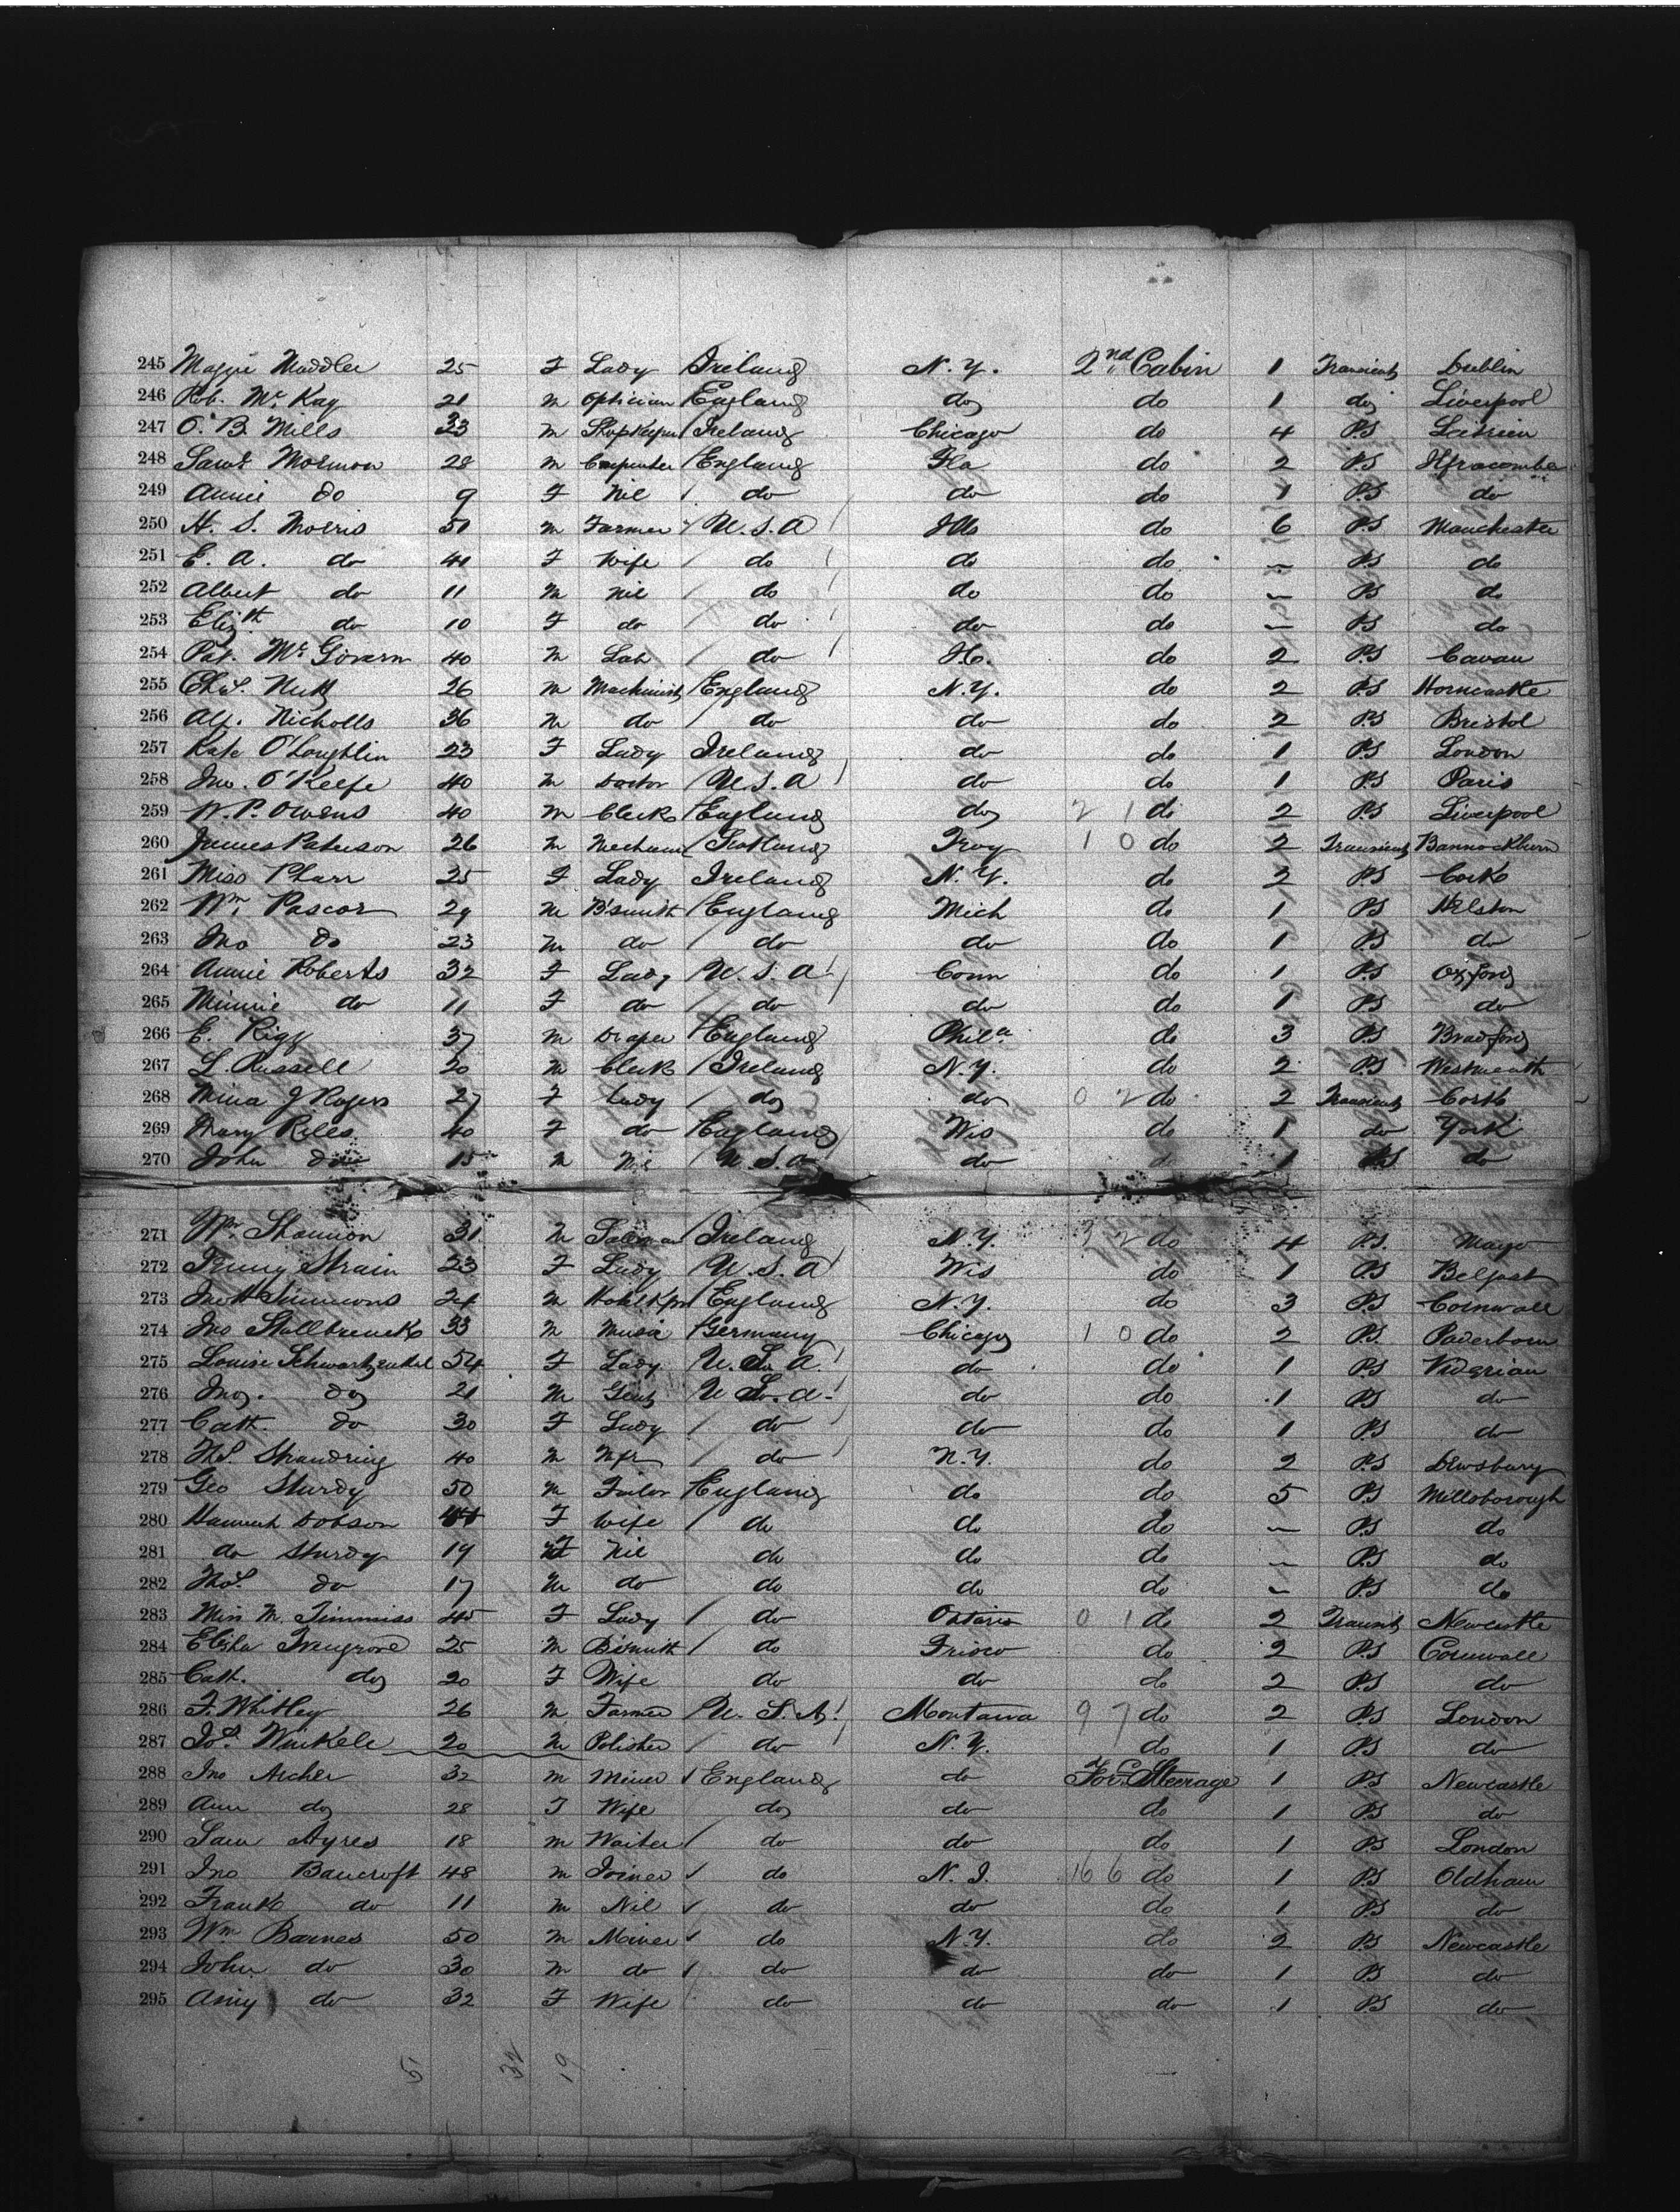 245 Maggie Maddler 25 F Lady Ireland N.Y. 2nd Cabin 1 Transient Dublin
246 Rb. Mc Kay 21 M Optician England do do 1 do Liverpool
247 O. B. Mills 33 M Shopkeeper Ireland Chicago do 4 P.S
248 Saml Morman 28 M Carpenter England Fla do 2 P.S Ilfracombe
249 Annie do 9 F Nil do do do 1 P.S do
250 H. S. Morris 51 M Farmer U.S.A Ills do 6 P.S Manchester
251 E. A. do 41 F Wife do do do ~ P.S do
252 Albert do 11 M Nil do do do ~ P.S do
253 Elizth do 10 F do do do do ~ P.S do
254 Pat. Mc Govern 40 M Lab do do 2 P.S Cavan
255 Chas. 26 M Machinist England N.Y. do 2 P.S Horncastle
256 Alf. Nicholls 36 M do do do do 2 P.S Bristol
257 Kate O'Loughlin 23 F Lady Ireland do do 1 P.S London
258 Jno. O'Keefe 40 M Doctor U.S.A do do 1 P.S Paris
259 W. P. Owens 40 M Clerk England do 2 1 do 2 P.S Liverpool
260 James Paterson 26 M Mechanic Scotland Troy 1 0 do 2 Transient Bannockburn
261 Miss Pharr 25 F Lady Ireland N.Y. do 2 P.S Cork
262 Wm. Pascor 29 M B'smith England Mich do 1 P.S Helston
263 Jno do 23 M do do do do 1 P.S do
264 Annie Roberts 32 F Lady U.S.A Conn do 1 P.S Oxford
265 Minnie do 11 F do do do do 1 P.S do
266 E. Rigg 37 M Draper England Phila do 3 P.S Bradford
267 L. Russell 20 M Clerk Ireland N.Y. do 2 P.S Westmeath
268 Mina J Rogers 27 F Lady do do 0 2 do 2 Transient Cork
269 Mary Riles 40 F do England Wis do 1 do York
270 John do 15 M Nil U.S.A do do 1 P.S do
271 Wm. Shannon 31 M Salesman Ireland N.Y. 3 2 do 4 P.S. Mayo
272 Jenny Strain 23 F Lady U.S.A Wis do 1 P.S Belfast
273 Jno H Simmons 24 M Hotel Kpr England N.Y. do 3 P.S Cornwall
274 Jno Stallbrenck 33 M Music Germany Chicago 1 0 do 2 P.S. Paderborn
275 Louise 54 F Lady U.S.A. do do 1 P.S
276 Jno. do 21 M Gent U.S.A. do do 1 P.S do
277 Cath. do 30 F Lady do do do 1 P.S do
278 Ths. Strandring 40 M Mfr do N.Y. do 2 P.S Dewsbury
279 Geo Sturdy 50 M Tailor England do do 5 P.S Millsborough
280 Hannah Dobson 44 F Wife do do do ~ P.S do
281 do Sturdy 19 F Nil do do do ~ P.S do
282 Thos. do 17 M do do do do ~ P.S do
283 Miss M. Timmiss 45 F Lady do Ontario 0 1 do 2 Transient Newcastle
284 Elisha Trengrove 25 M B'smith do Frisco do 2 P.S Cornwall
285 Cath. do 20 F Wife do do do 2 P.S do
286 F. Whitley 26 M Farmer U.S.A. Montana 9 7 do 2 P.S London
287 Jos. Winkele 20 M Polisher do N.Y. do 1 P.S do
288 Jno Archer 32 M Miner England do For'd Steerage 1 P.S Newcastle
289 Ann do 28 F Wife do do do 1 P.S do
290 Sam Ayres 18 M Waiter do do do 1 P.S London
291 Jno Bancroft 48 M Joiner do N.J. 16 6 do 1 P.S Oldham
292 Frank do 11 M Nil do do do 1 P.S do
293 Wm Barnes 50 M Miner do N.Y. do 2 P.S Newcastle
294 John do 30 M do do do do 1 P.S do
295 Amy do 32 F Wife do do do 1 P.S do
5 32 19